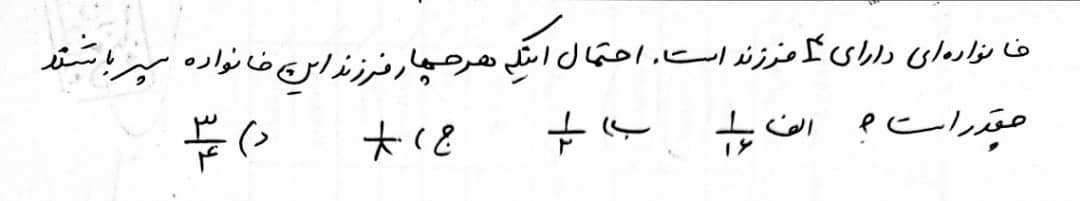 خانواده‌ای دارای ۴ فرزند است. احتمال اینکه هر چهار فرزند این خانواده پسر باشند
چقدر است؟ الف ۱/۱۶ ب) ۱/۲ ج) ۱/۸ د) ۳/۴